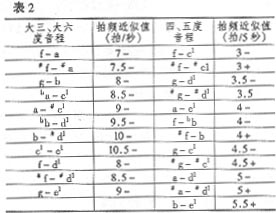 表2
大三、大六度音程 拍频近似值(拍/秒) 四、五度音程 拍频近似值(拍/5秒)
f—a 7− f—c¹ 3−
#f—#a 7.5− #f—#c1 3+
g—b 8− g—d¹ 3.5
ba—c¹ 8.5− #g—#d¹ 3.5
a—#c¹ 9− a—d¹ 4−
bb—d¹ 9.5− f—bb 4−
b—#d¹ 10− #f—b 4+
c¹—e¹ 10.5− g—c¹ 4.5−
f—d¹ 8− #g—#c¹ 4.5+
#f—#d¹ 8.5− a—d¹ 5−
g—e¹ 9− #a—#d¹ 5+
b—e¹ 5.5+